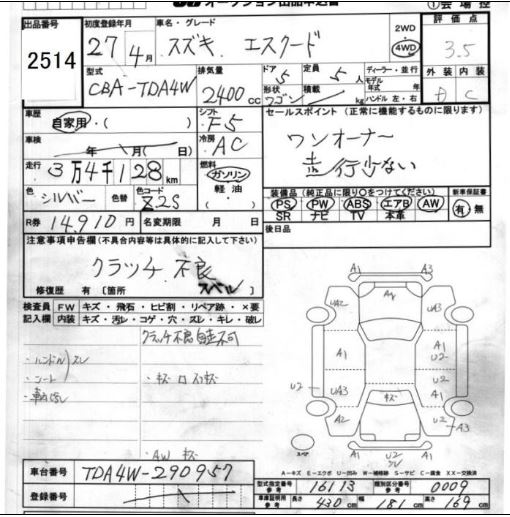 オークション出品申込書
① 会場控
出品番号 2514
初度登録年月 27年 4月
車名・グレード スズキ エスクード
2WD 4WD
評価点 3.5
型式 CBA-TDA4W
排気量 2400cc
ドア 5
形状 ワゴン
定員 5人
積載 kg
ディーラー・並行
モデル年式 年
ハンドル 左・右
外装 内装 C
車歴 自家用・( )
シフト F5
車検 年 月( 日)
冷房 AC
セールスポイント (正常に機能するものに限ります)
ワンオーナー
走行少ない
走行 3万4千128km
燃料 ガソリン 軽油・
色 シルバー 色替 色コード Z2S
装備品 (純正品に限り○をつけてください) 新車保証書
PS PW ABS エアB AW 有・無
SR ナビ TV 本革
R券 14,910円 名変期限 月 日
後日品
注意事項申告欄 (不具合内容等は具体的に記入して下さい)
クラッチ不良
スベル
修復歴 有〔箇所
検査員記入欄 FW キズ・飛石・ヒビ割・リペア跡・×要
内装 キズ・汚レ・コゲ・穴・スレ・キレ・破レ
クラッチ不良 自走不可
・ハンドル スレ
・シート
・AW キズ
A1 A3
UA2 A4 UA2
A1 A1 U2
U2 UA3 キズ A1
A2 U2
A3
A1 U2 A1
スペア
A-キズ E-エクボ U-凹み W-補修跡 S-サビ C-腐食 XX-交換済
車台番号 TDA4W-290957
登録番号
型式指定番号 参考 16113
類別区分番号 参考 0009
車庫証明用 参考 長さ 430cm 幅 181cm 高さ 169cm